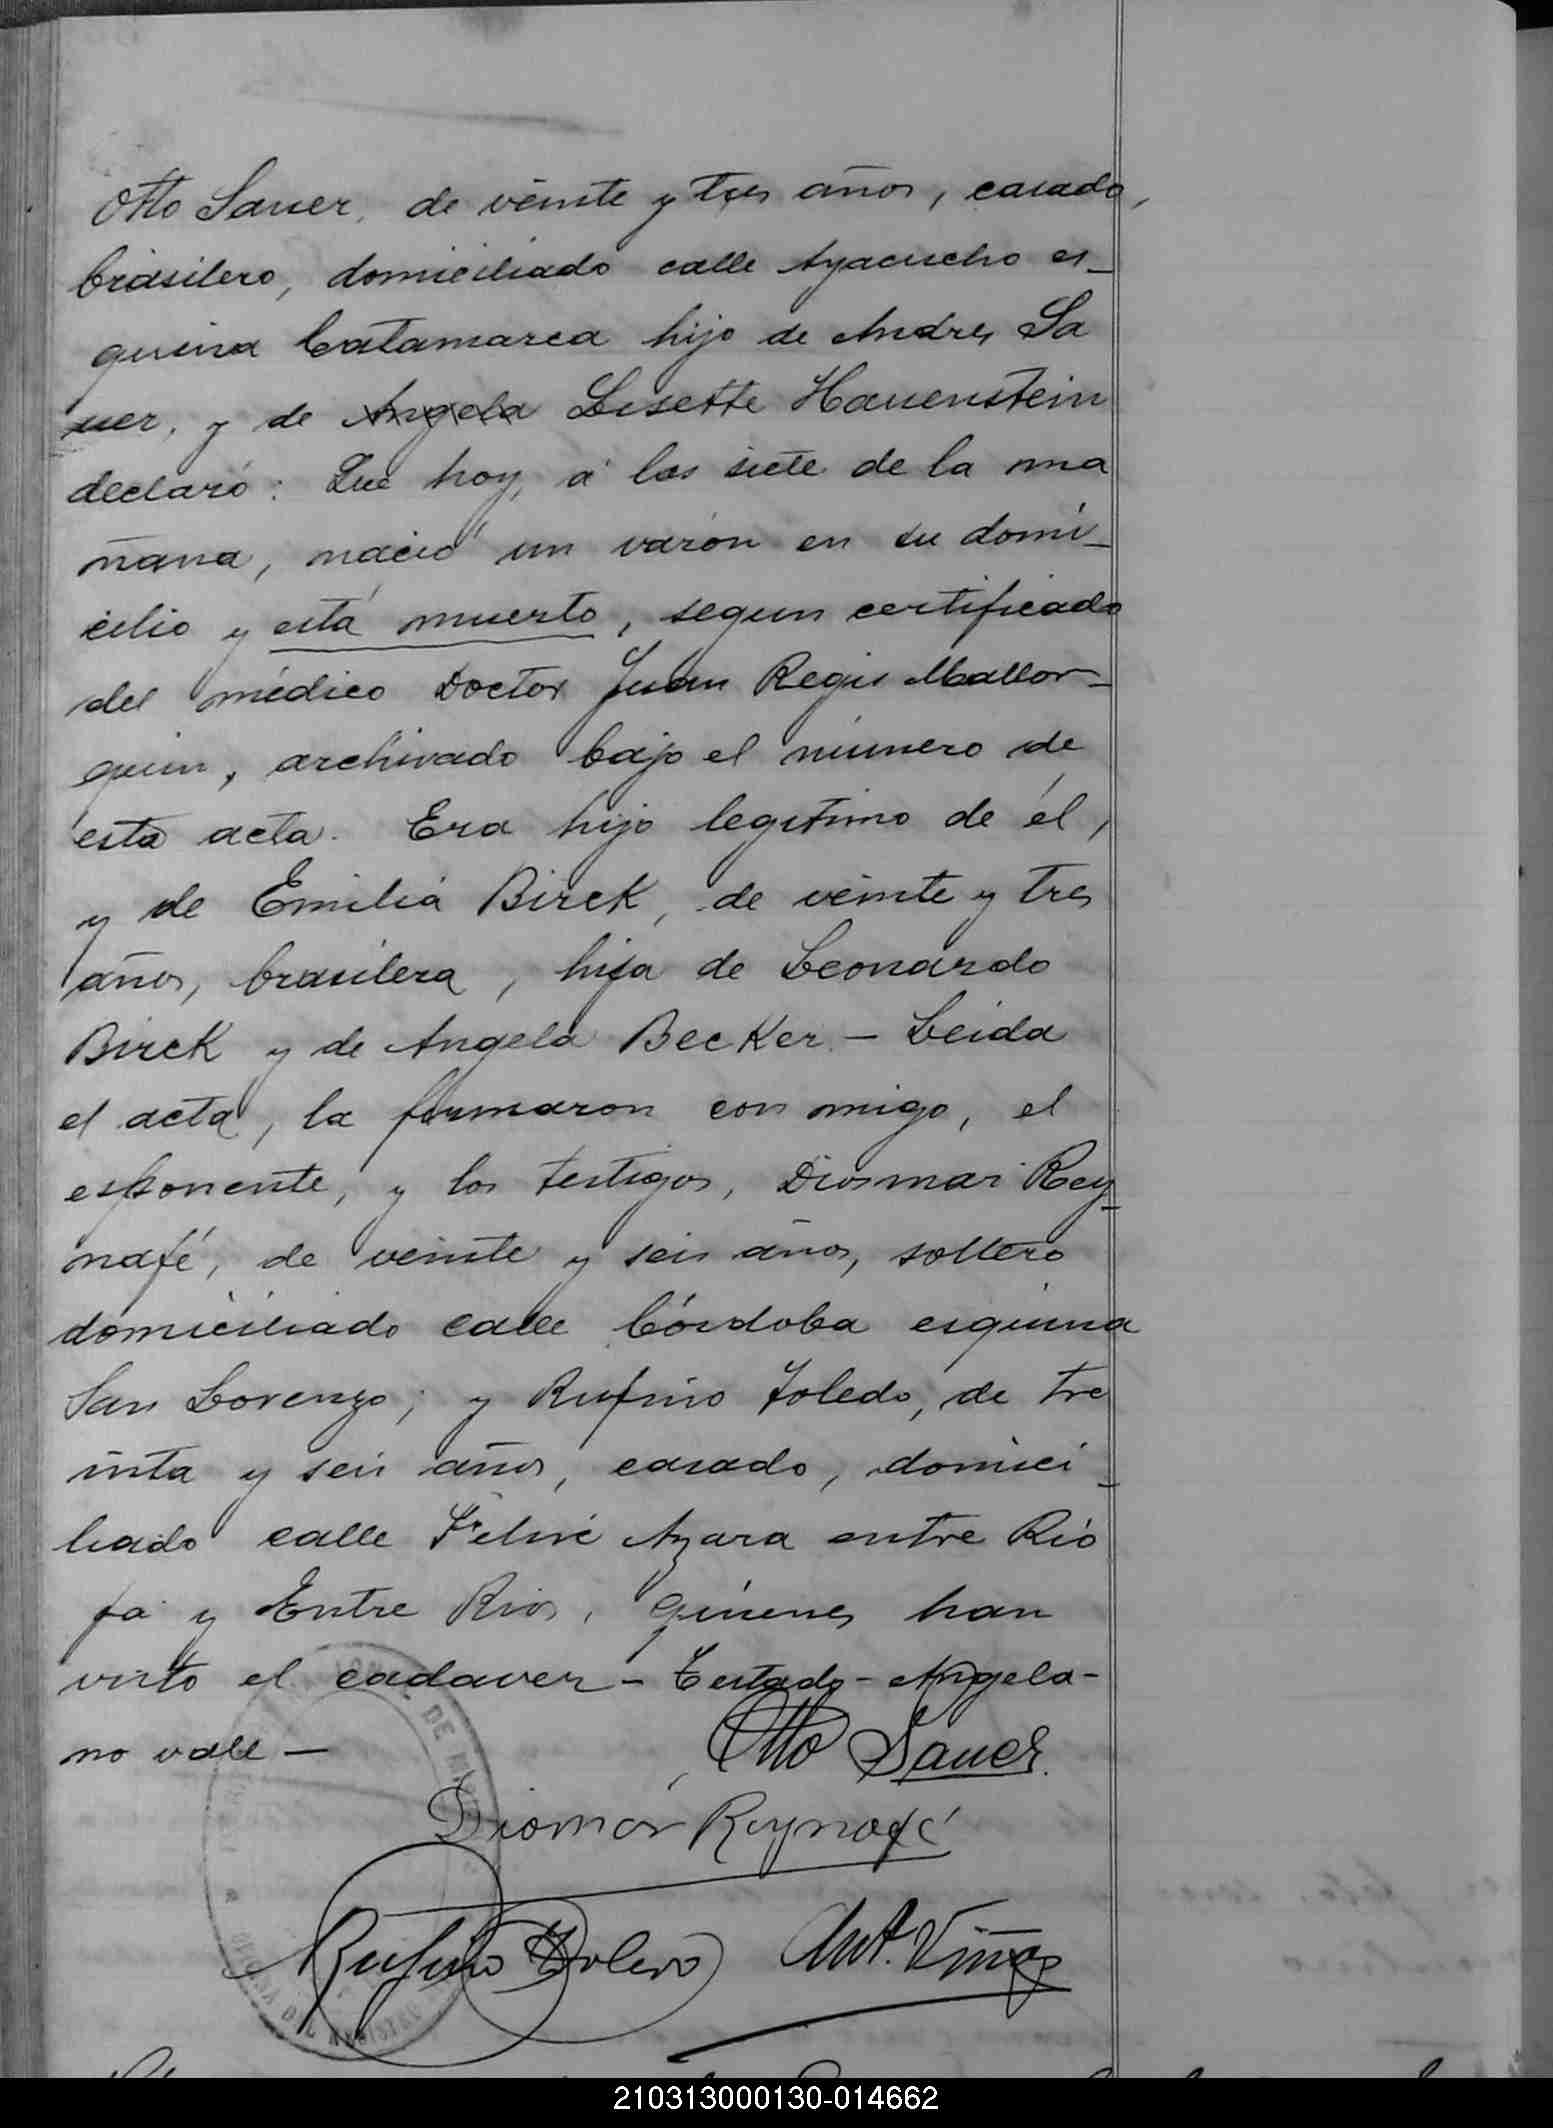 Otto Sauer, de veinte y tres años, casado,
brasilero, domiciliado calle Ayacucho es-
quina Catamarca hijo de Andres Sa
uer, y de Angela Lisette Hauenstein
declaró: Que hoy, á las siete de la ma
ñana, nació un varón en su domi-
cilio y está muerto, segun certificado
del médico Doctor Juan Regis Mallor-
quin, archivado bajo el número de
esta acta. Era hijo legitimo de él,
y de Emilia Birck, de veinte y tres
años, brasilera, hija de Leonardo
Birck y de Angela Becker. - Leida
el acta, la firmaron con migo, el
esponente, y los testigos, Diosmar Rey-
nafé, de veinte y seis años, soltero
domiciliado calle Córdoba esquina
San Lorenzo; y Rufino Toledo, de tre
inta y seis años, casado, domici-
liado calle Felix Azara entre Rio
ja y Entre Rios, quienes han
visto el cadaver - Testado - Angela -
no vale -
Otto Sauer.
Diomar Reynafé
Rufino Toledo Ant. Viñas
210313000130-014662